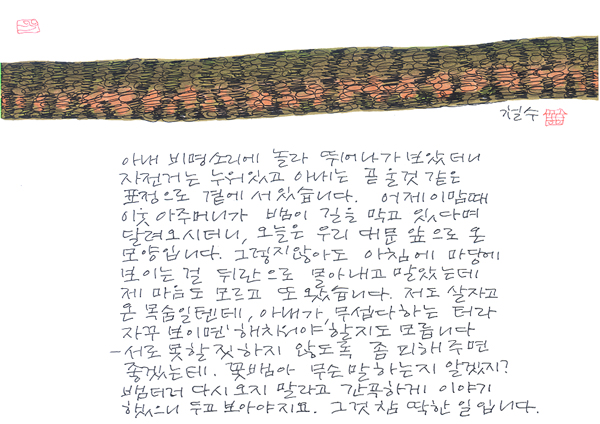 철수
아내 비명소리에 놀라 뛰어나가 보았더니
자전거는 누워있고 아내는 곧 울것 같은
표정으로 곁에 서 있습니다. 어제 이맘때
이웃 아주머니가 뱀이 길을 막고 있다며
달려오시더니, 오늘은 우리 대문 앞으로 온
모양입니다. 그렇지않아도 아침에 마당에
보이는 걸 뒤란으로 몰아내고 말았는데
제 마음도 모르고 또 왔습니다. 저도 살자고
온 목숨일텐데, 아내가, 무섭다하는 터라
자꾸 보이면 '해차워야' 할지도 모릅니다
- 서로 못할 짓 하지 않도록 좀 피해주면
좋겠는데. 꽃뱀아 무슨 말 하는지 알겠지?
뱀더러 다시 오지 말라고 간곡하게 이야기
했으니 두고 보아야지요. 그것 참 딱한 일입니다.